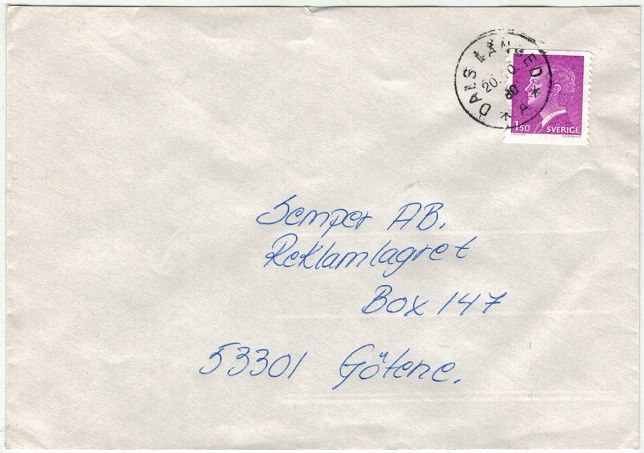 DALS LÅNGED
20.10.
80
* A *
150 SVERIGE
Semper AB.
Reklamlagret
Box 147
53301 Götene.